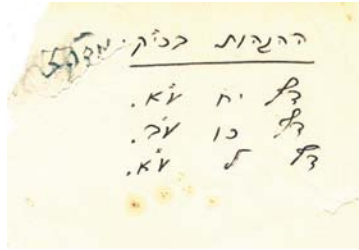 ההגהות בכי"ק.
דף יח ע"א.
דף כו ע"ב.
דף ל ע"א.